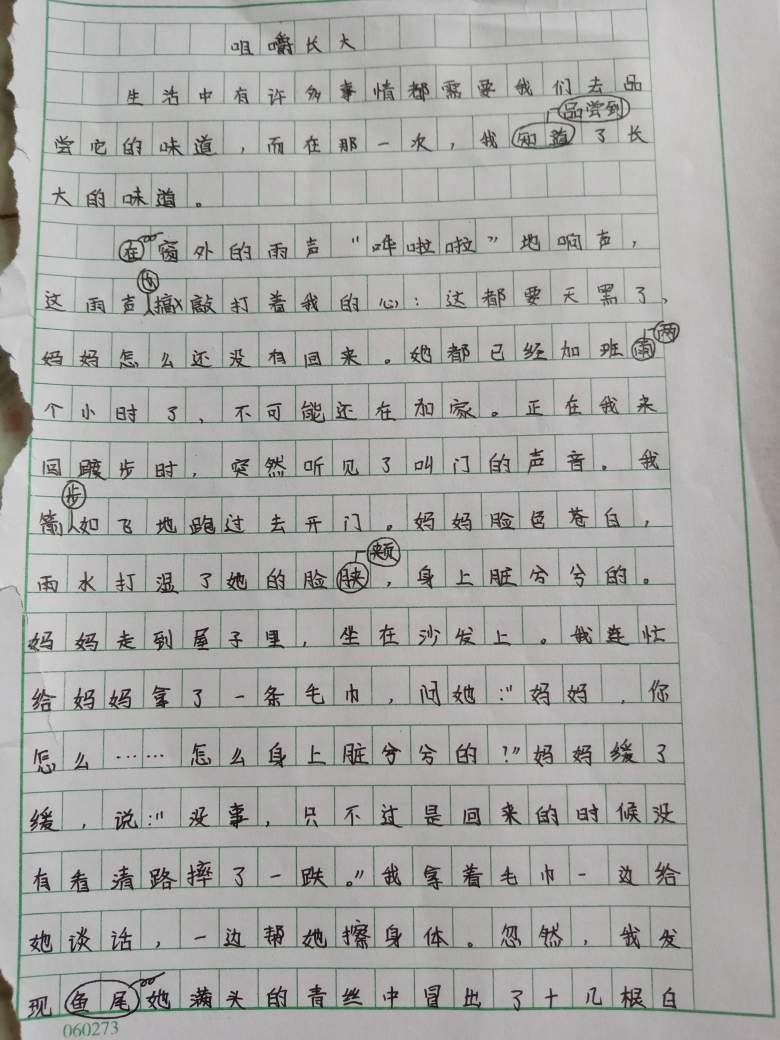 咀嚼长大
生活中有许多事情都需要我们去品
品尝到
尝它的味道，而在那一次，我知道了长
大的味道。
在窗外的雨声“哗啦啦”地响声，
这雨声敲打着我的心：这都要天黑了，
妈妈怎么还没有回来。她都已经加班雨
两
个小时了，不可能还在加家。正在我来
回踱步时，突然听见了叫门的声音。我
步
箭如飞地跑过去开门。妈妈脸色苍白，
颊
雨水打湿了她的脸脥，身上脏兮兮的。
妈妈走到屋子里，坐在沙发上。我连忙
给妈妈拿了一条毛巾，问她：“妈妈，你
怎么……怎么身上脏兮兮的？”妈妈缓了
缓，说：“没事，只不过是回来的时候没
有看清路摔了一跌。”我拿着毛巾一边给
她谈话，一边帮她擦身体。忽然，我发
现鱼尾她满头的青丝中冒出了十几根白
060273